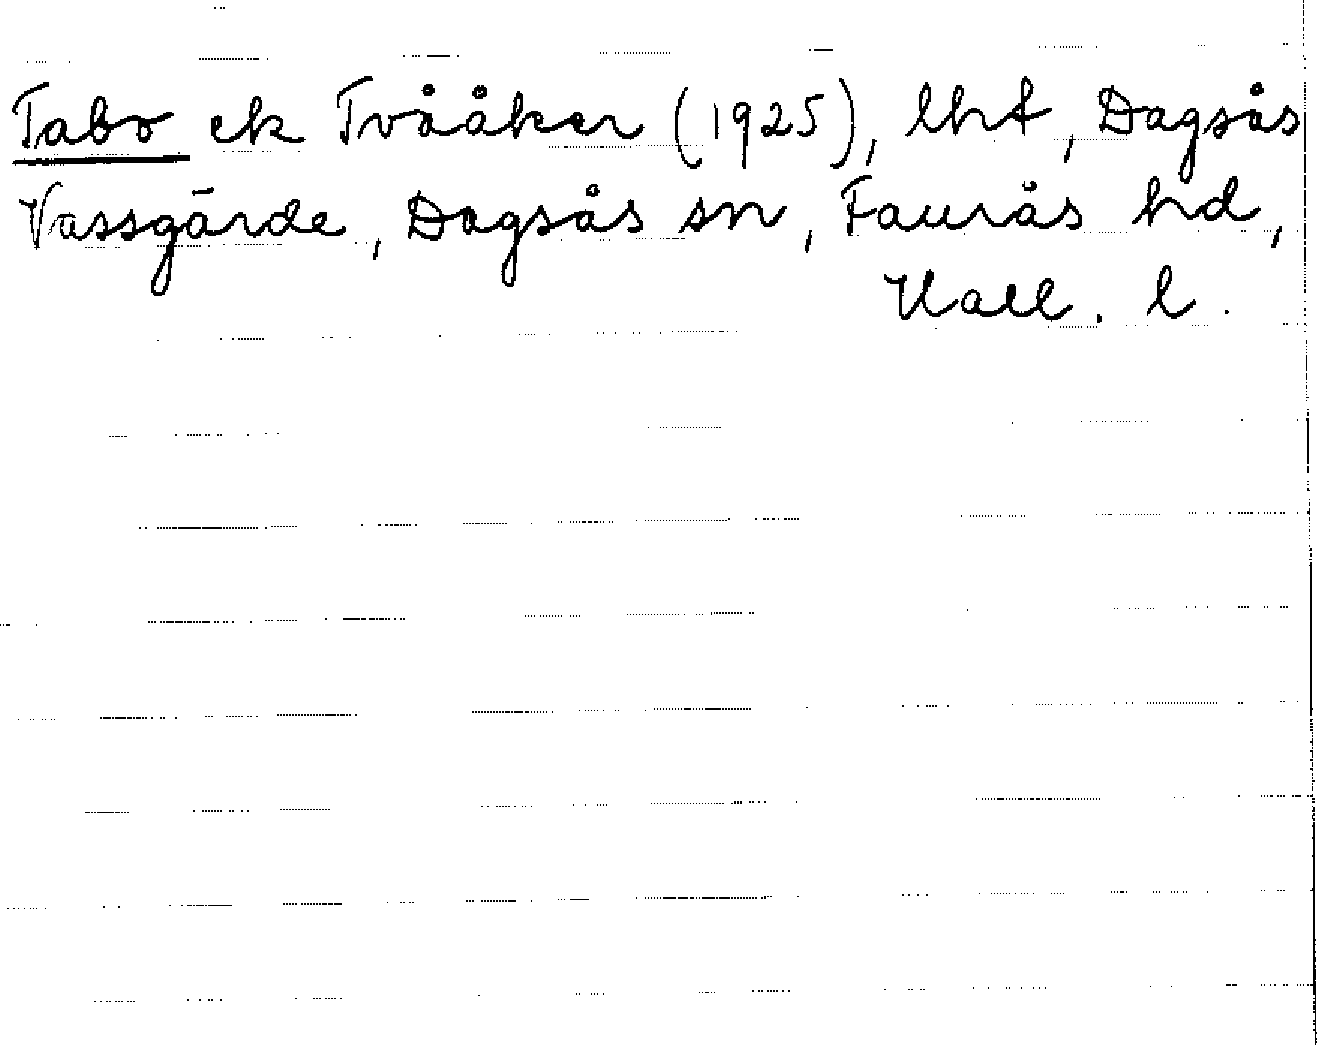 Tabo ek Tvååker (1925), lht, Dagsås
Vassgärde, Dagsås sn, Faurås hd,
Hall. l.